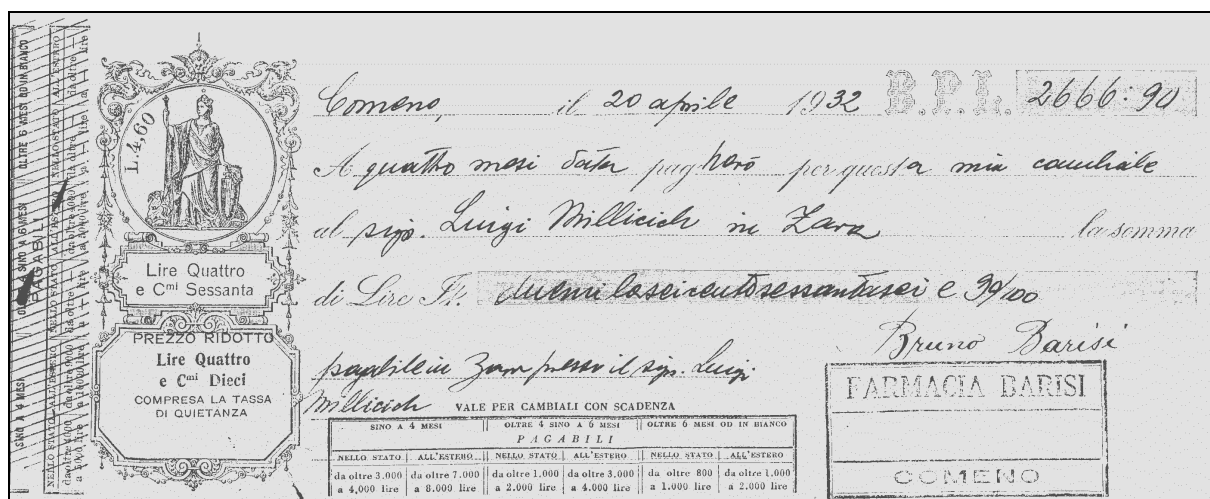 SINO A 4 MESI OLTRE 4 SINO A 6 MESI OLTRE 6 MESI OD IN BIANCO
PAGABILI
L.4,60
Lire Quattro
e Cmi Sessanta
PREZZO RIDOTTO
Lire Quattro
e Cmi Dieci
COMPRESA LA TASSA
DI QUIETANZA
Comeno, il 20 aprile 1932 B.P.L. 2666:90
A quattro mesi data pagherò per questa mia cambiale
al sig. Luigi Millicich in Zara la somma
di Lire It. duemilaseicentosessantasei e 90/100
Bruno Barisi
pagabile in Zara presso il sig. Luigi
Millicich
FARMACIA BARISI
COMENO
VALE PER CAMBIALI CON SCADENZA
SINO A 4 MESI OLTRE 4 SINO A 6 MESI OLTRE 6 MESI OD IN BIANCO
PAGABILI
NELLO STATO ALL'ESTERO NELLO STATO ALL'ESTERO NELLO STATO ALL'ESTERO
da oltre 3.000 da oltre 7.000 da oltre 1.000 da oltre 3.000 da oltre 800 da oltre 1.000
a 4,000 lire a 8.000 lire a 2.000 lire a 4.000 lire a 1.000 lire a 2.000 lire